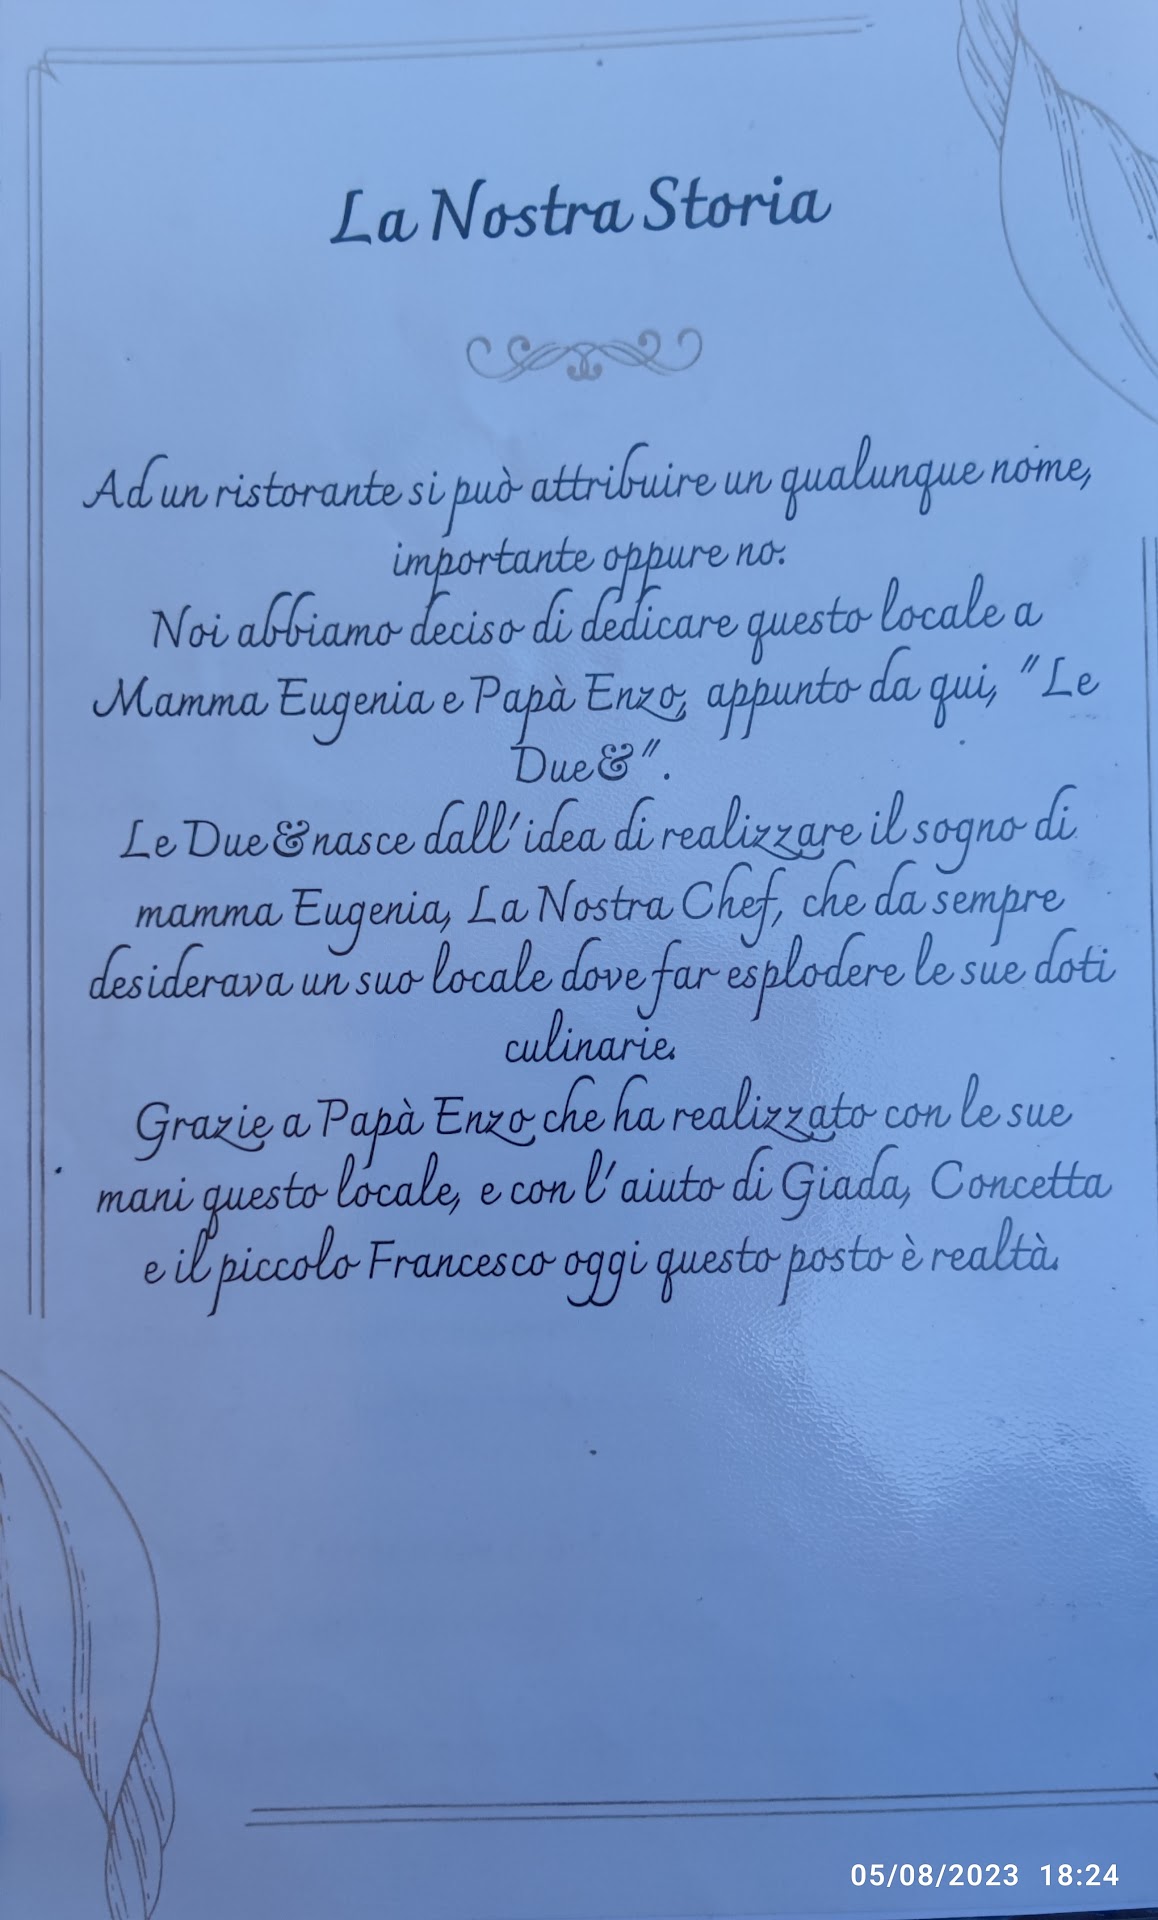 La Nostra Storia
Ad un ristorante si può attribuire un qualunque nome,
importante oppure no.
Noi abbiamo deciso di dedicare questo locale a
Mamma Eugenia e Papà Enzo, appunto da qui, "Le
Due&".
Le Due& nasce dall'idea di realizzare il sogno di
mamma Eugenia, La Nostra Chef, che da sempre
desiderava un suo locale dove far esplodere le sue doti
culinarie.
Grazie a Papà Enzo che ha realizzato con le sue
mani questo locale, e con l'aiuto di Giada, Concetta
e il piccolo Francesco oggi questo posto è realtà.
05/08/2023 18:24